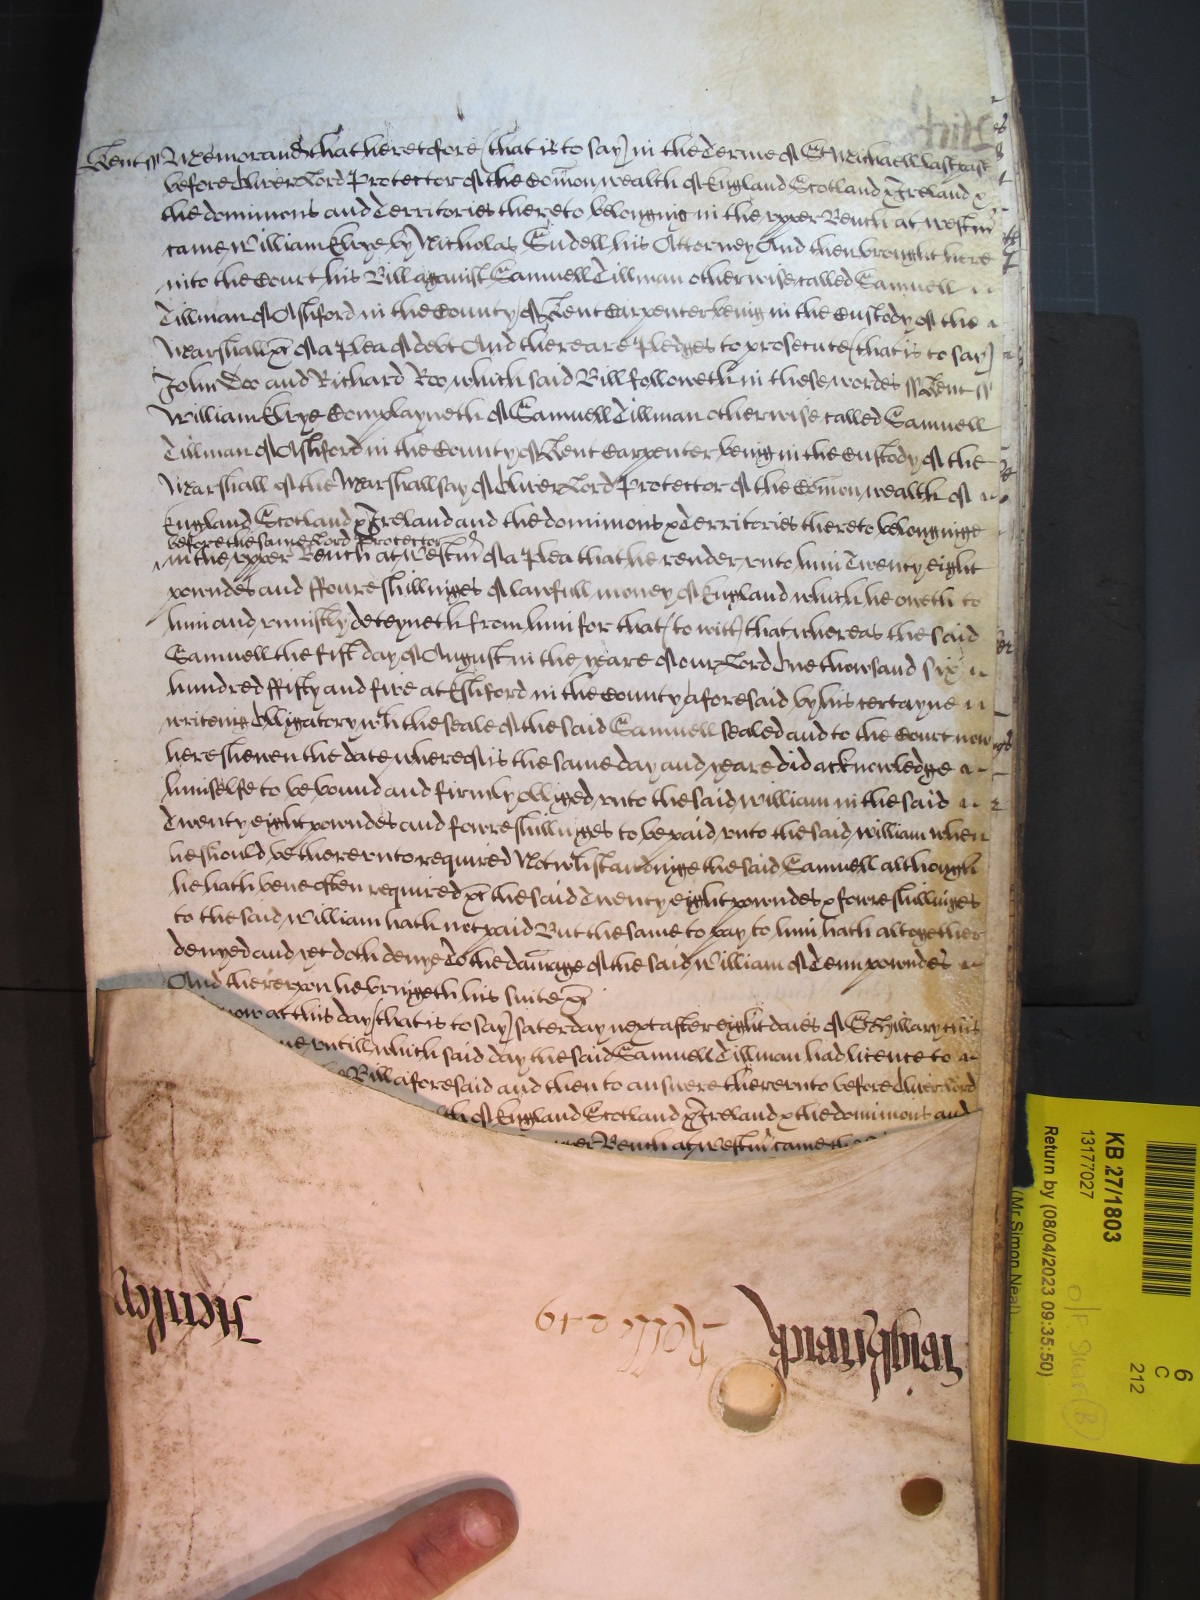 Kent ss Memorand that heretofore (that is to say) in the Terme of St Michaell last past
before Oliver Lord Protector of the Com̄on wealth of England Scotland & Ireland &
the dominions and Territories thereto belonging in the upper Bench at Westm̃
came William Kbye by Nicholas Sudell his Attorney And then brought here
into the Court his Bill against Samuell Tillman otherwise called Samuell
Tillman of Ashford in the County of Kent Carpenter being in the Custody of the
Marshall &c of a Plea of debt And there are Pledges to prosecute (that is to say)
John Doo and Richard Roo which said Bill followeth in these wordes ss Kent ss
William Kbye Complayneth of Samuell Tillman otherwise called Samuell
Tillman of Ashford in the County of Kent Carpenter being in the Custody of the
Marshall of the Marshallsay of Oliver Lord Protector of the Com̄on wealth of
England Scotland & Ireland and the dominions & Territories thereto belonginge
before the same Lord Protector
in the upper Bench at Westm̃ of a Plea that he render unto him Twenty eight
powndes and ffoure shillinges of lawfull money of England which he oweth to
him and uniustly deteyneth from him for that (to witt) that whereas the said
Samuell the first day of August in the yeare of our Lord One thowsand six
hundred ffifty and five at Eshford in the County aforesaid by his certayne
writeing obligatory wth the seale of the said Samuell sealed and to the Court now
here shewen the date whereof is the same day and yeare did acknowledge
himselfe to be bound and firmly obliged unto the said William in the said
Twenty eight powndes and fowre shillinges to be paid unto the said William when
he should be thereunto required Notwthstandinge the said Samuell although
he hath bene often required &c the said Twenty eight powndes & fowre shillinges
to the said William hath not paid But the same to pay to him hath altogether
denyed and yet doth denye To the dam̄age of the said William of Tenn powndes
And thereupon he bringeth his suite &c
now at this day (that is to say) Saterday next after eight daies of St Hillary this
untill which said day the said Samuell Tillman had licence to
Bill aforesaid and then to answere thereunto before Oliver Lord
of England Scotland & Ireland & the dominions and
Bench at Westm̃ came
Henley
Rolle 219
Wightwick
KB 27/1803
13177027
Return by (08/04/2023 09:35:50)
(Mr Simon Neal)
6
C
212